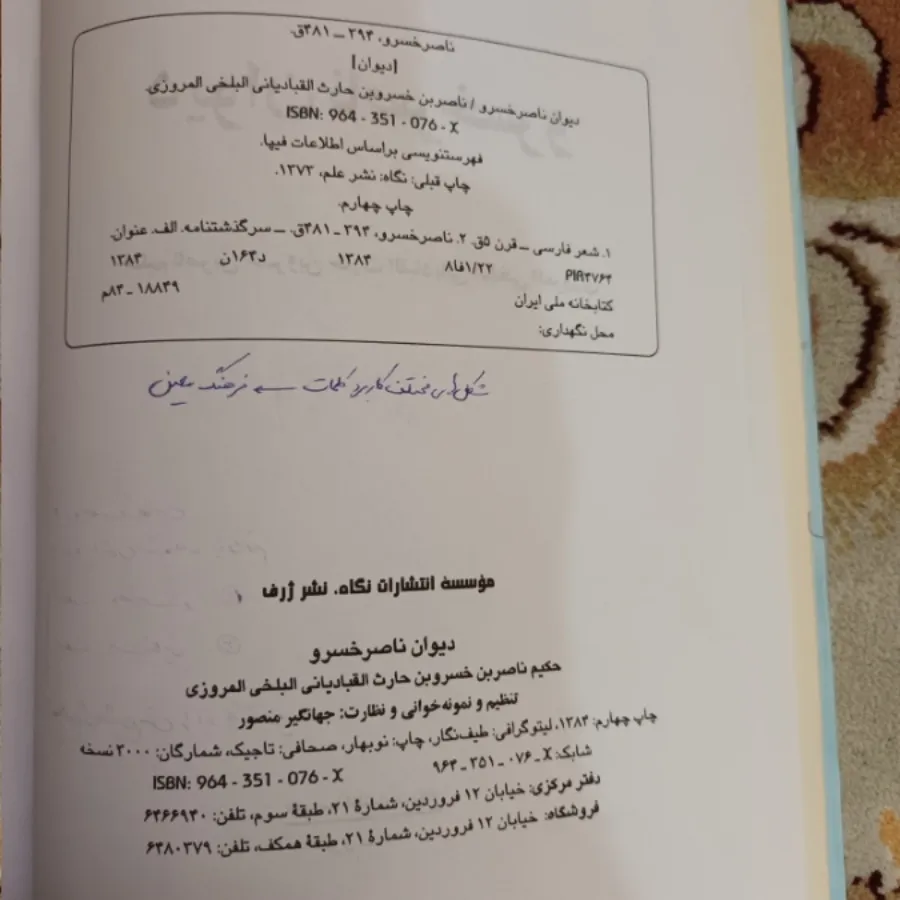 ناصرخسرو، ۳۹۴ ــ ۴۸۱ق.
[دیوان]
دیوان ناصرخسرو / ناصربن خسروبن حارث القبادیانی البلخی المروزی.
ISBN: 964 - 351 - 076 - X
فهرستنویسی براساس اطلاعات فیپا.
چاپ قبلی: نگاه: نشر علم، ۱۳۷۳.
چاپ چهارم.
۱. شعر فارسی ــ قرن ۵ق. ۲. ناصرخسرو، ۳۹۴ ـ ۴۸۱ق. ــ سرگذشتنامه. الف. عنوان.
PIR۴۷۶۴ ۱/۲۲فا۸ ۱۳۸۴ د۱۶۳ن ۱۳۸۴
کتابخانه ملی ایران ۱۸۸۴۹ ـ ۸۴م
محل نگهداری:
شکل‌های مختلف کاربرد کلمات فرهنگ معین
مؤسسهٔ انتشارات نگاه، نشر ژرف
دیوان ناصرخسرو
حکیم ناصربن خسروبن حارث القبادیانی البلخی المروزی
تنظیم و نمونه‌خوانی و نظارت: جهانگیر منصور
چاپ چهارم: ۱۳۸۴، لیتوگرافی: طیف‌نگار، چاپ: نوبهار، صحافی: تاجیک، شمارگان: ۳۰۰۰ نسخه
شابک: X ـ ۰۷۶ ـ ۳۵۱ ـ ۹۶۴
ISBN: 964 - 351 - 076 - X
دفتر مرکزی: خیابان ۱۲ فروردین، شمارهٔ ۲۱، طبقهٔ سوم، تلفن: ۶۴۶۶۹۴۰
فروشگاه: خیابان ۱۲ فروردین، شمارهٔ ۲۱، طبقهٔ همکف، تلفن: ۶۴۸۰۳۷۹